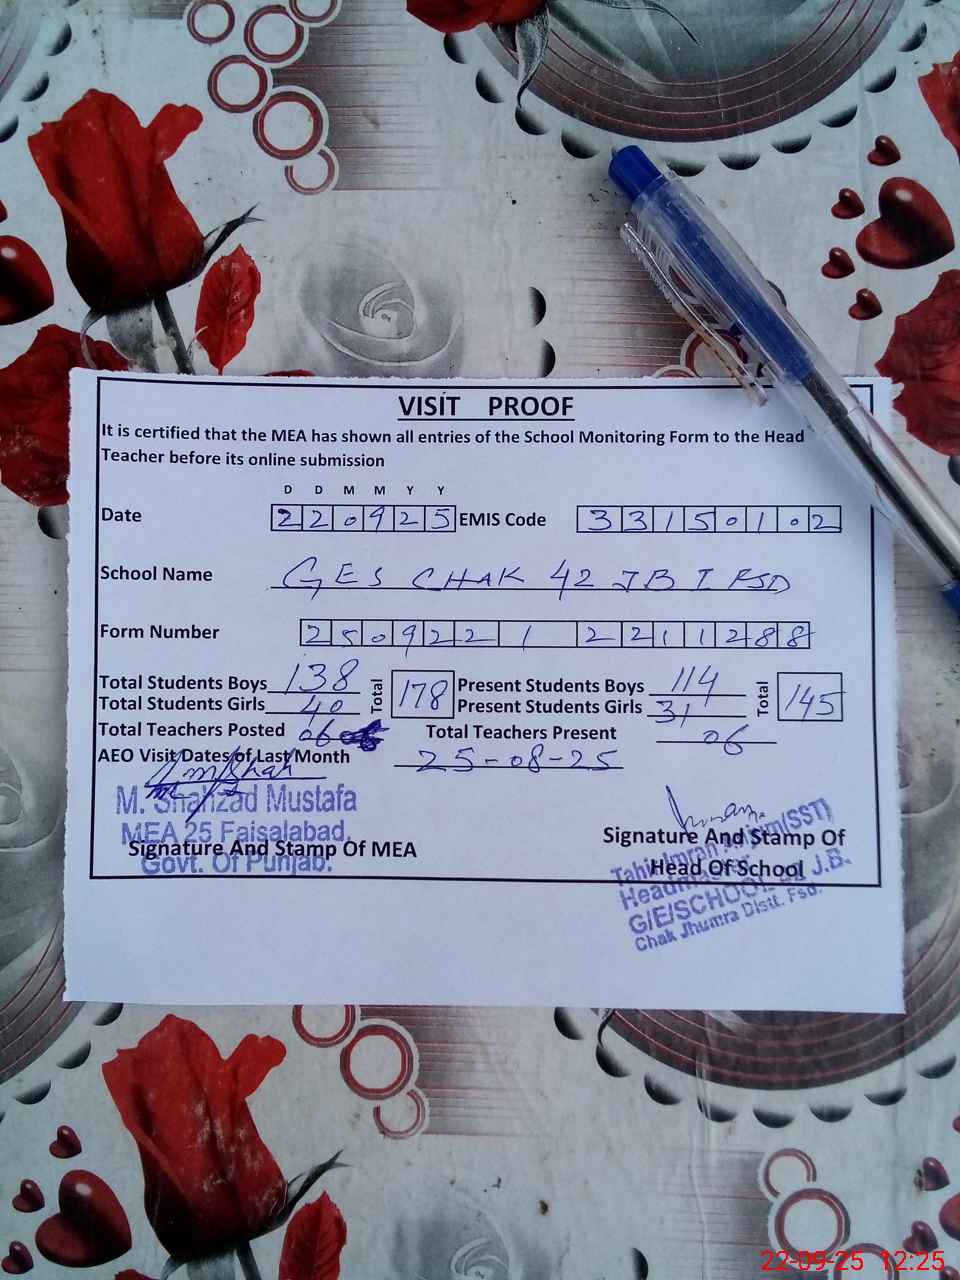 VISIT PROOF
It is certified that the MEA has shown all entries of the School Monitoring Form to the Head
Teacher before its online submission
D D M M Y Y
Date 220925 EMIS Code 33150102
School Name GES CHAK 42 JB I FSD
Form Number 250922 1 2211288
Total Students Boys 138 Total 178 Present Students Boys 114 Total 145
Total Students Girls 40 Present Students Girls 31
Total Teachers Posted 06 Total Teachers Present 06
AEO Visit Dates of Last Month 25-08-25
M. Shahzad Mustafa
MEA 25 Faisalabad.
Signature And Stamp Of MEA
Govt. Of Punjab.
Signature And Stamp Of
Head Of School
Tahir Imran (SST)
Headmaster
G/E/SCHOOL 42 J.B.
Chak Jhumra Distt. Fsd.
22-09-25 12:25